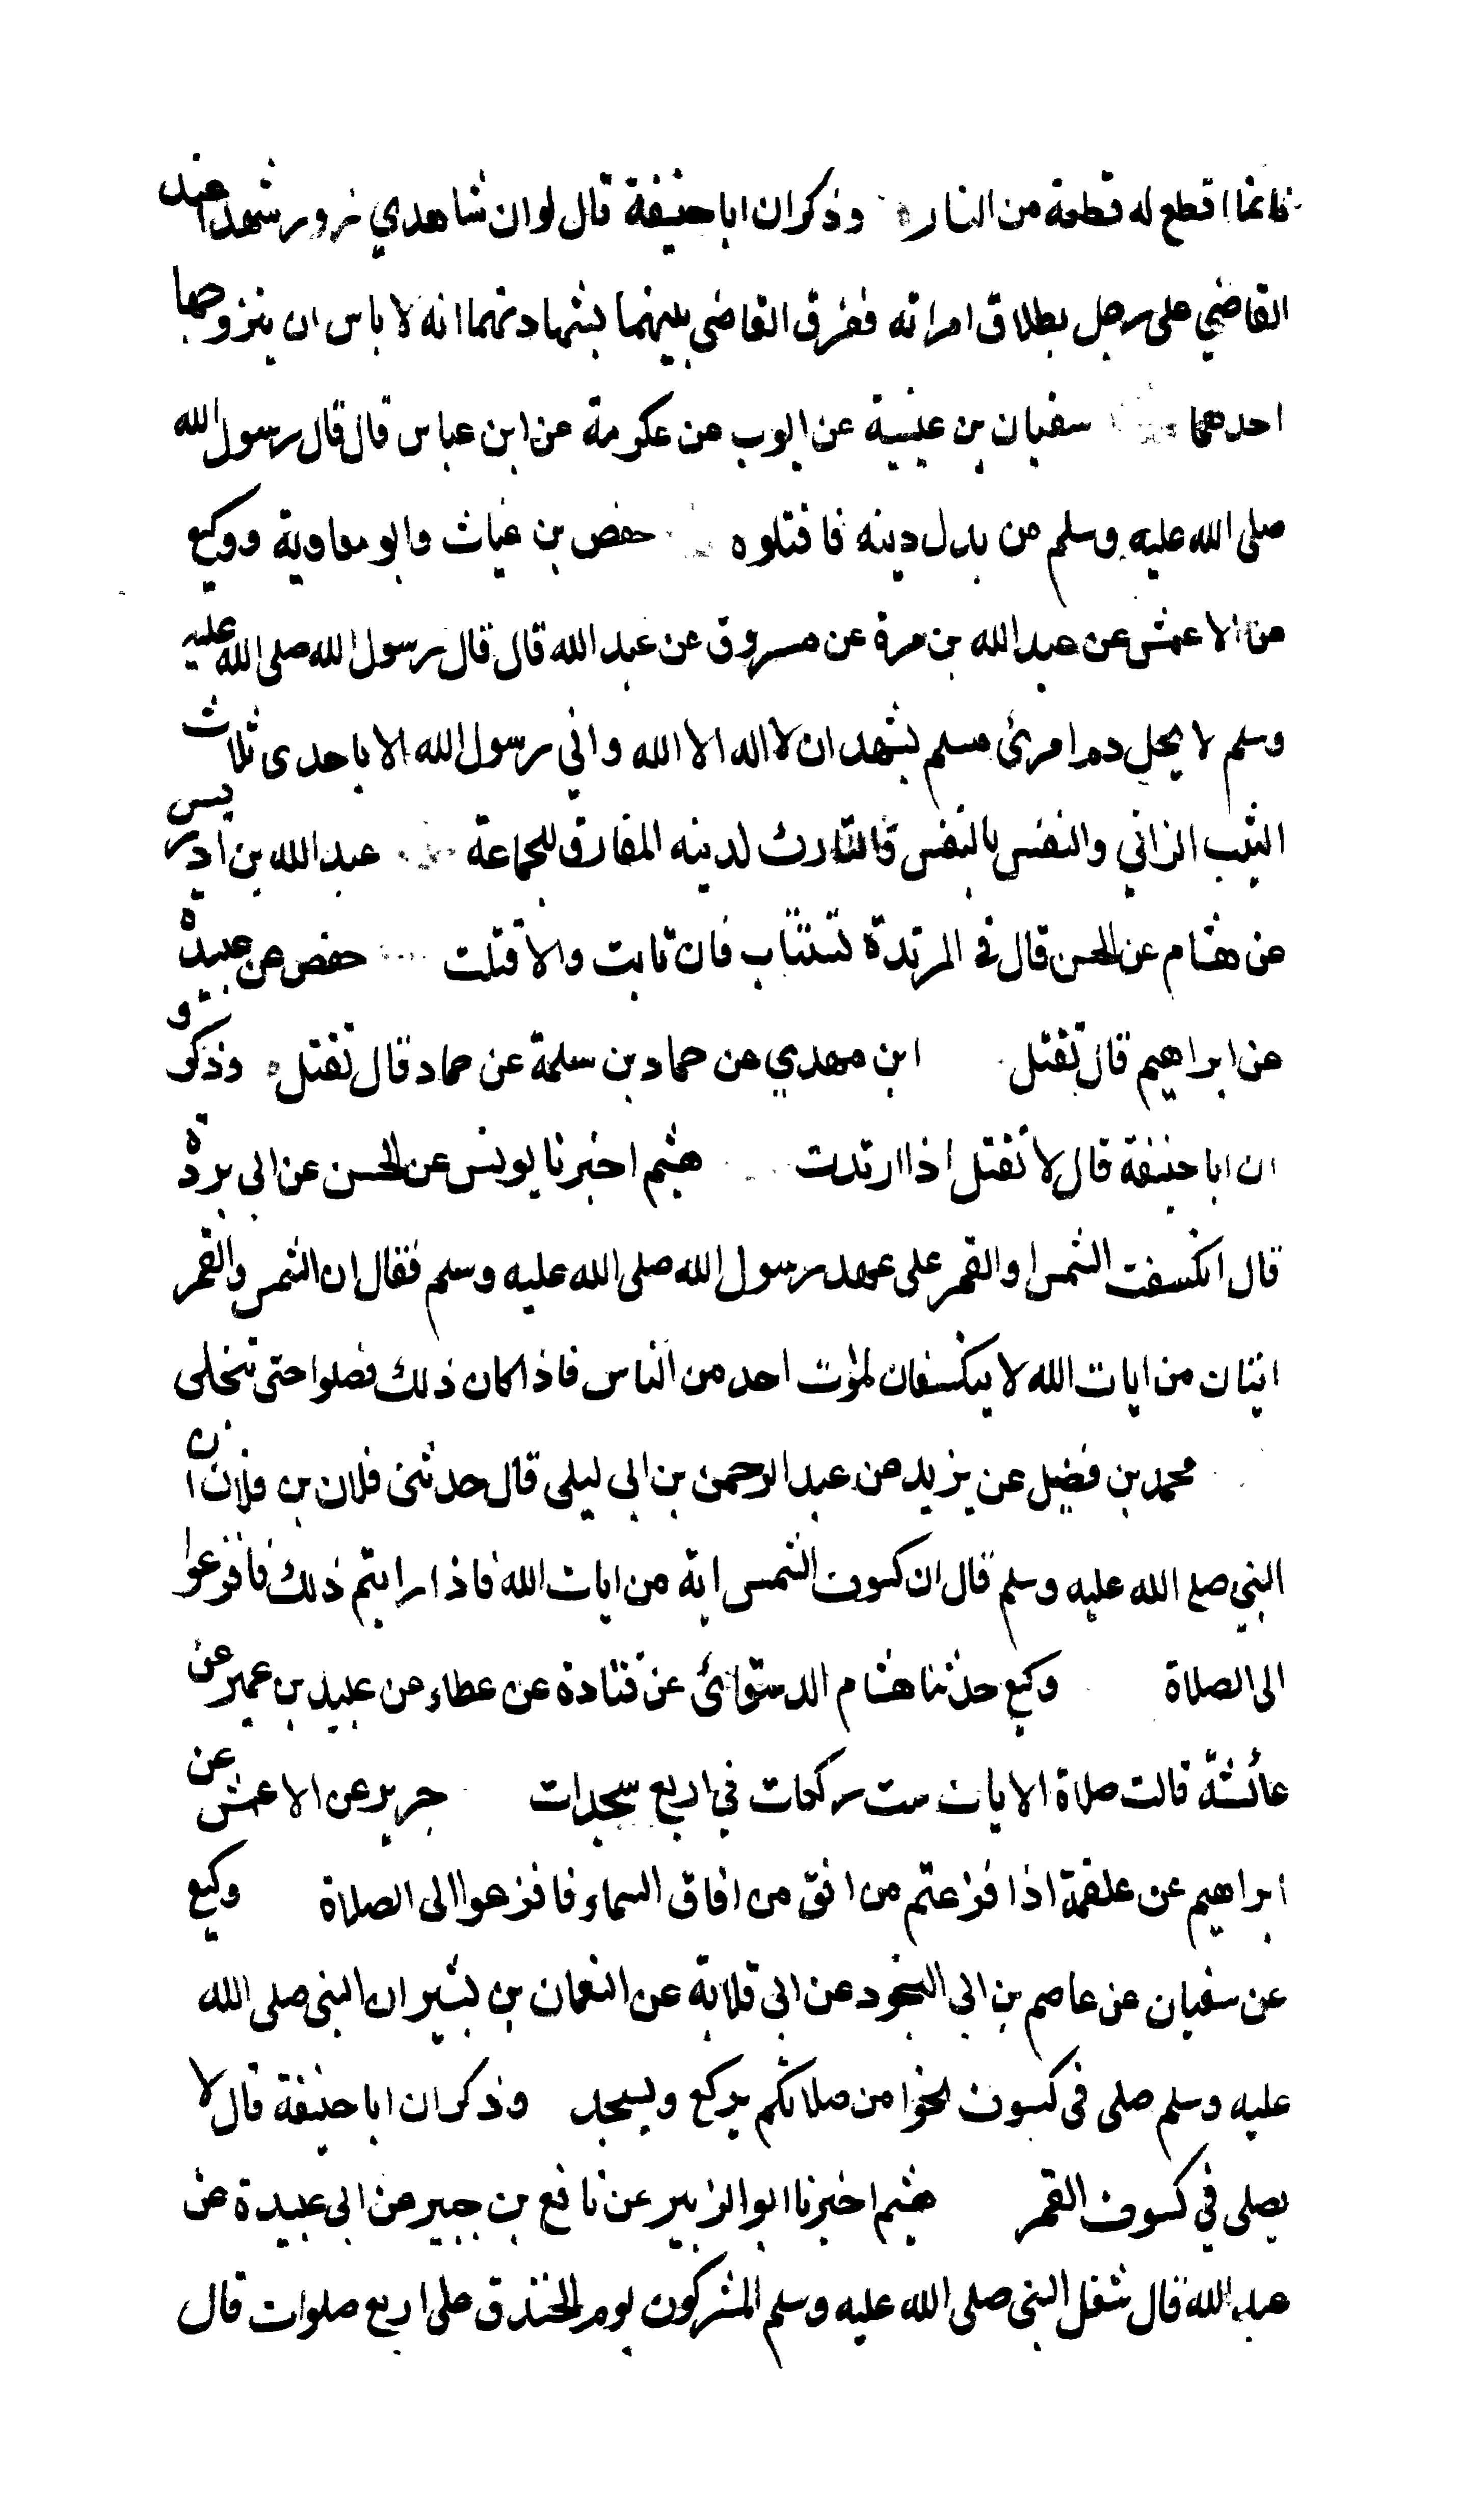 فانما اقطع له قطعة من النار وذكر ان ابا حنيفة قال لو ان شاهدي زور شهدا عند
القاضي على رجل بطلاق امراته ففرق القاضي بينهما بشهادتهما انه لا باس ان يتزوجها
احدهما سفيان بن عيينة عن ايوب عن عكرمة عن ابن عباس قال قال رسول الله
صلى الله عليه وسلم من بدل دينه فاقتلوه حفص بن غياث وابو معاوية ووكيع
عن الاعمش عن عبد الله بن مرة عن مسروق عن عبد الله قال قال رسول الله صلى الله عليه
وسلم لا يحل دم امرئ مسلم يشهد ان لا اله الا الله واني رسول الله الا باحدى ثلاث
الثيب الزاني والنفس بالنفس والتارك لدينه المفارق للجماعة عبد الله بن ادريس
عن هشام عن الحسن قال في المرتدة تستتاب فان تابت والا قتلت حفص عن عبيدة
عن ابراهيم قال تقتل ابن مهدي عن حماد بن سلمة عن حماد قال تقتل وذكروا
ان ابا حنيفة قال لا تقتل اذا ارتدت هشيم اخبرنا يونس عن الحسن عن ابي بردة
قال انكسفت الشمس او القمر على عهد رسول الله صلى الله عليه وسلم فقال ان الشمس والقمر
ايتان من ايات الله لا ينكسفان لموت احد من الناس فاذا كان ذلك فصلوا حتى تنجلى
محمد بن فضيل عن يزيد عن عبد الرحمن بن ابي ليلى قال حدثنى فلان بن فلان ان
النبي صلع الله عليه وسلم قال ان كسوف الشمس اية من ايات الله فاذا رايتم ذلك فافزعوا
الى الصلاة وكيع حدثنا هشام الدستوائى عن قتادة عن عطاء عن عبيد بن عمير عن
عائشة قالت صلاة الايات ست ركعات في اربع سجدات جرير عن الاعمش عن
ابراهيم عن علقمة اذا فزعتم من افق من افاق السماء فافزعوا الى الصلاة وكيع
عن سفيان عن عاصم بن ابي النجود عن ابى قلابة عن النعمان بن بشير ان النبى صلى الله
عليه وسلم صلى في كسوف نحوا من صلاتكم يركع ويسجد وذكر ان ابا حنيفة قال لا
يصلى في كسوف القمر هشيم اخبرنا ابو الزبير عن نافع بن جبير عن ابى عبيدة عن
عبد الله قال شغل النبى صلى الله عليه وسلم المشركون يوم الخندق على اربع صلوات قال